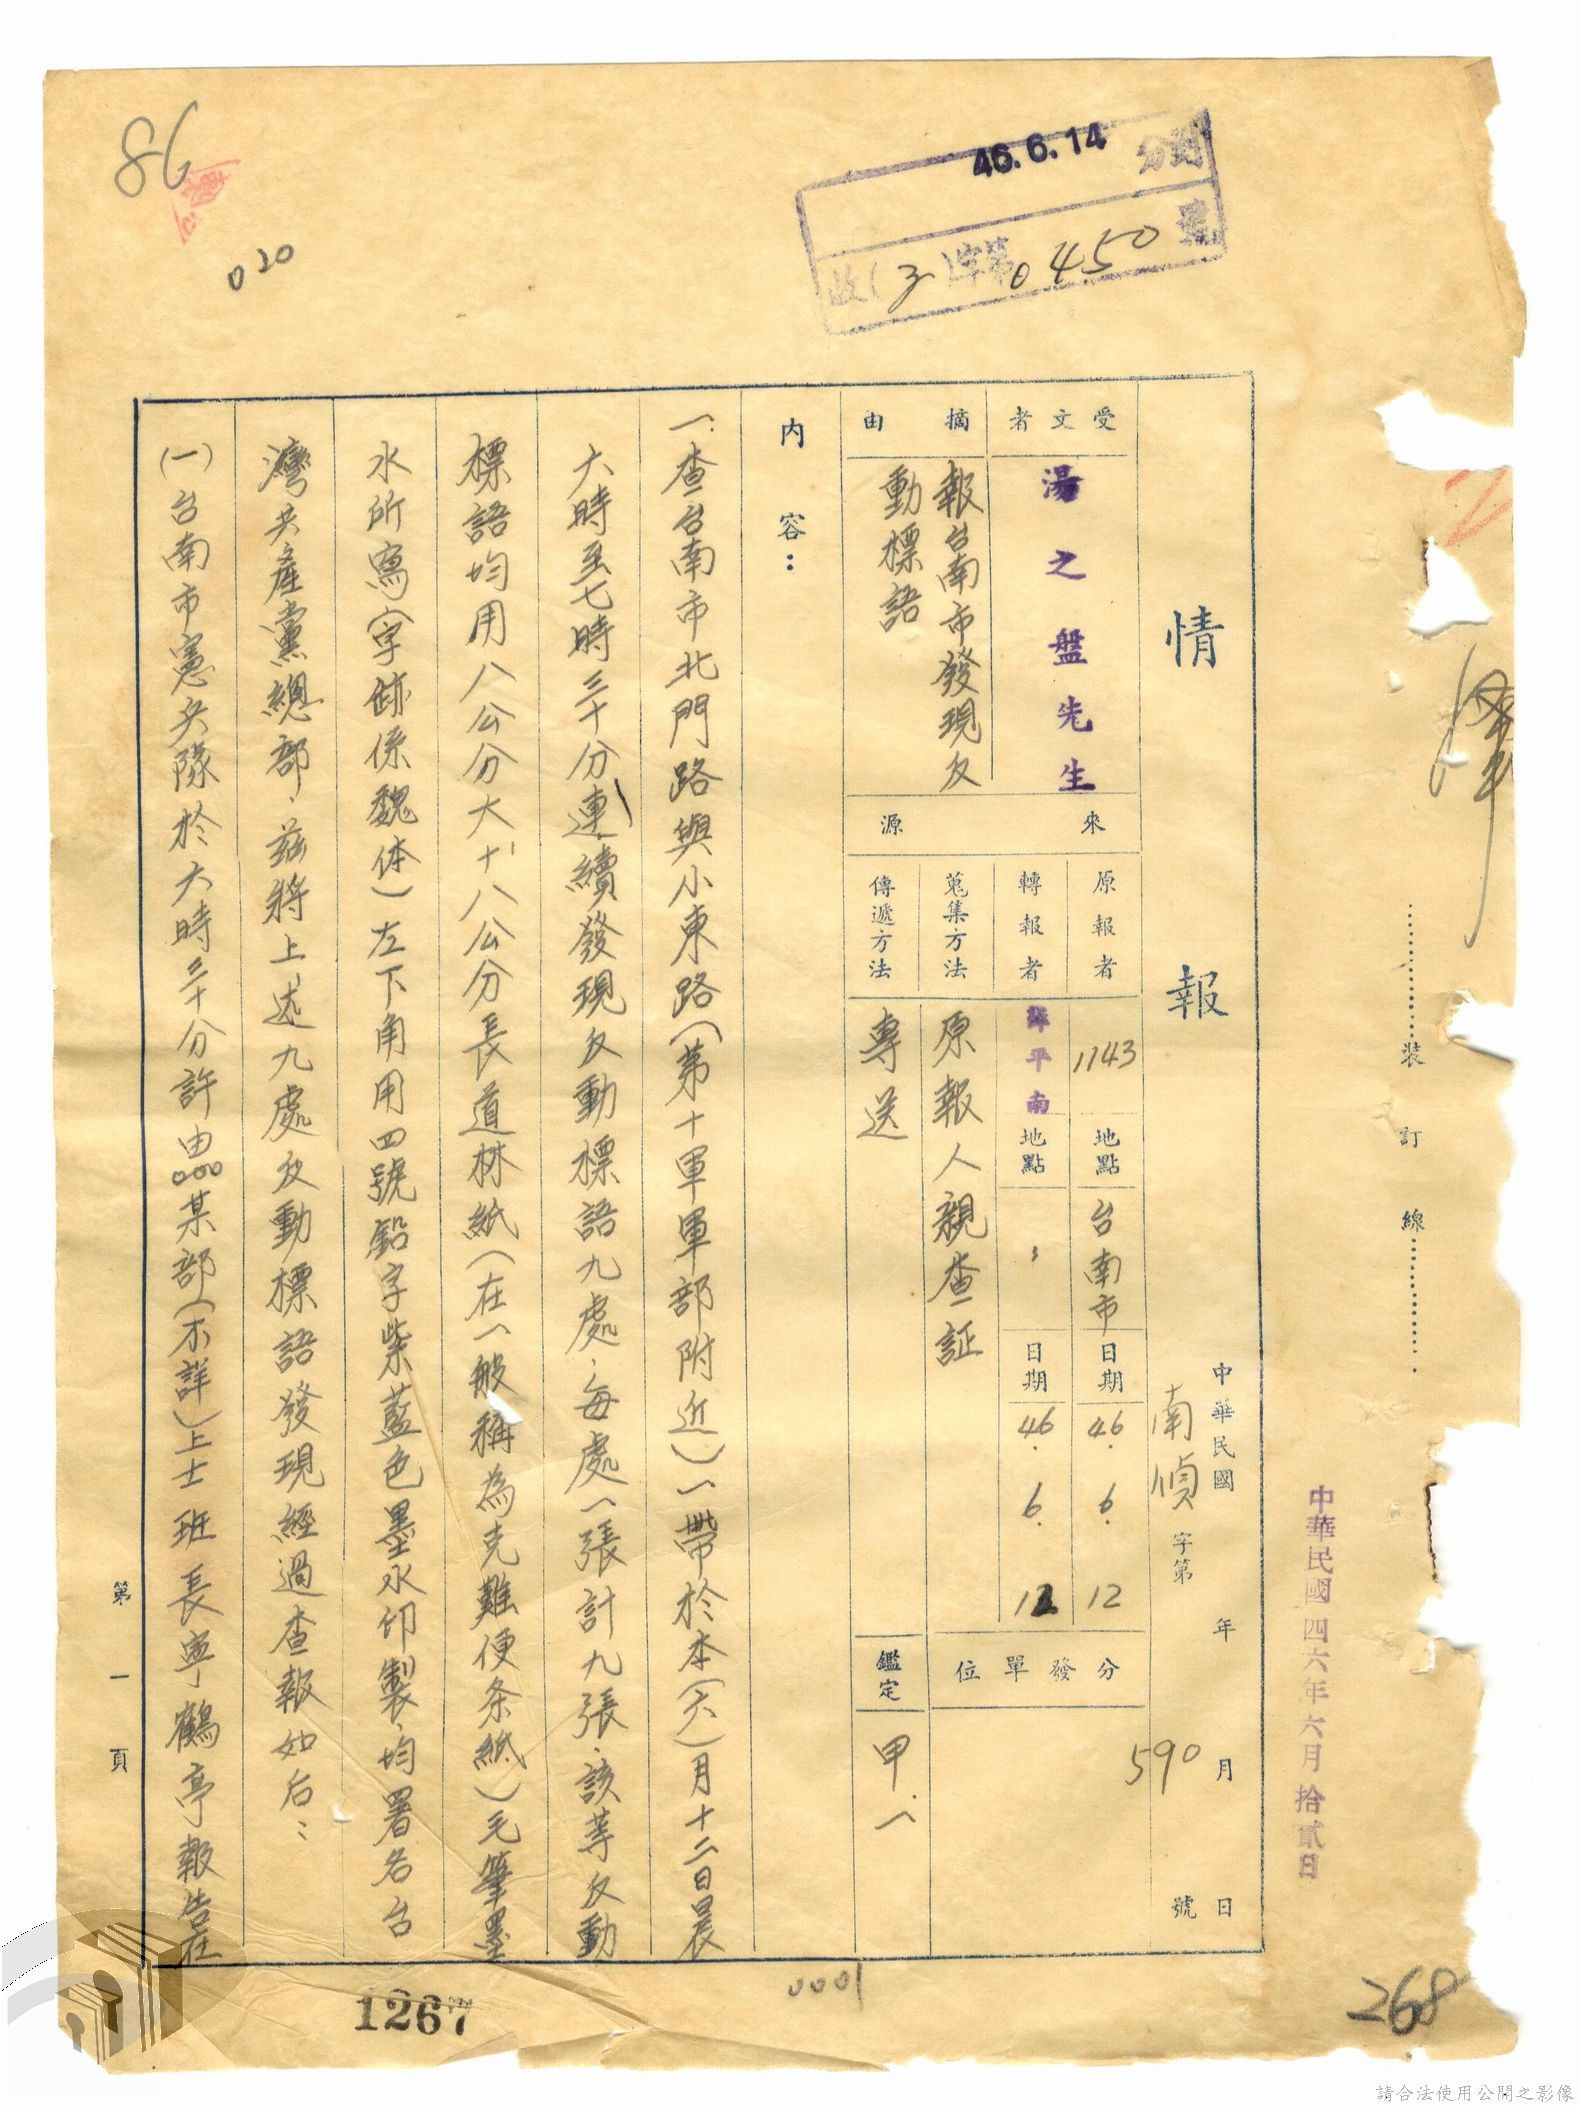 86
020
46.6.14
收( )字第0450號
裝訂線
中華民國四六年六月拾貳日
中華民國 年 月 日
情報
南偵字第590號
受文者 湯之盤先生
摘由 報台南市發現反
動標語
來源
原報者 1143 地點 台南市 日期 46.6.12
轉報者 薛平南 地點 〃 日期 46.6.12
蒐集方法 原報人親查証
傳遞方法 專送
分發單位
鑑定 甲.一
內容：
一.查台南市北門路與小東路(第十軍軍部附近)一帶於本(六)月十二日晨
六時至七時三十分連續發現反動標語九處、每處一張計九張、該等反動
標語均用八公分大十八公分長道林紙(在一般稱為克難便条紙)毛筆墨
水所寫(字跡係魏体)左下角用四號鉛字紫藍色墨水印製、均署名台
灣共產黨總部、茲將上述九處反動標語發現經過查報如后：
(一)台南市憲兵隊於六時三十分許由某部(不詳)上士班長寧鶴亭報告在
第一頁
0001
1267
268
請合法使用公開之影像